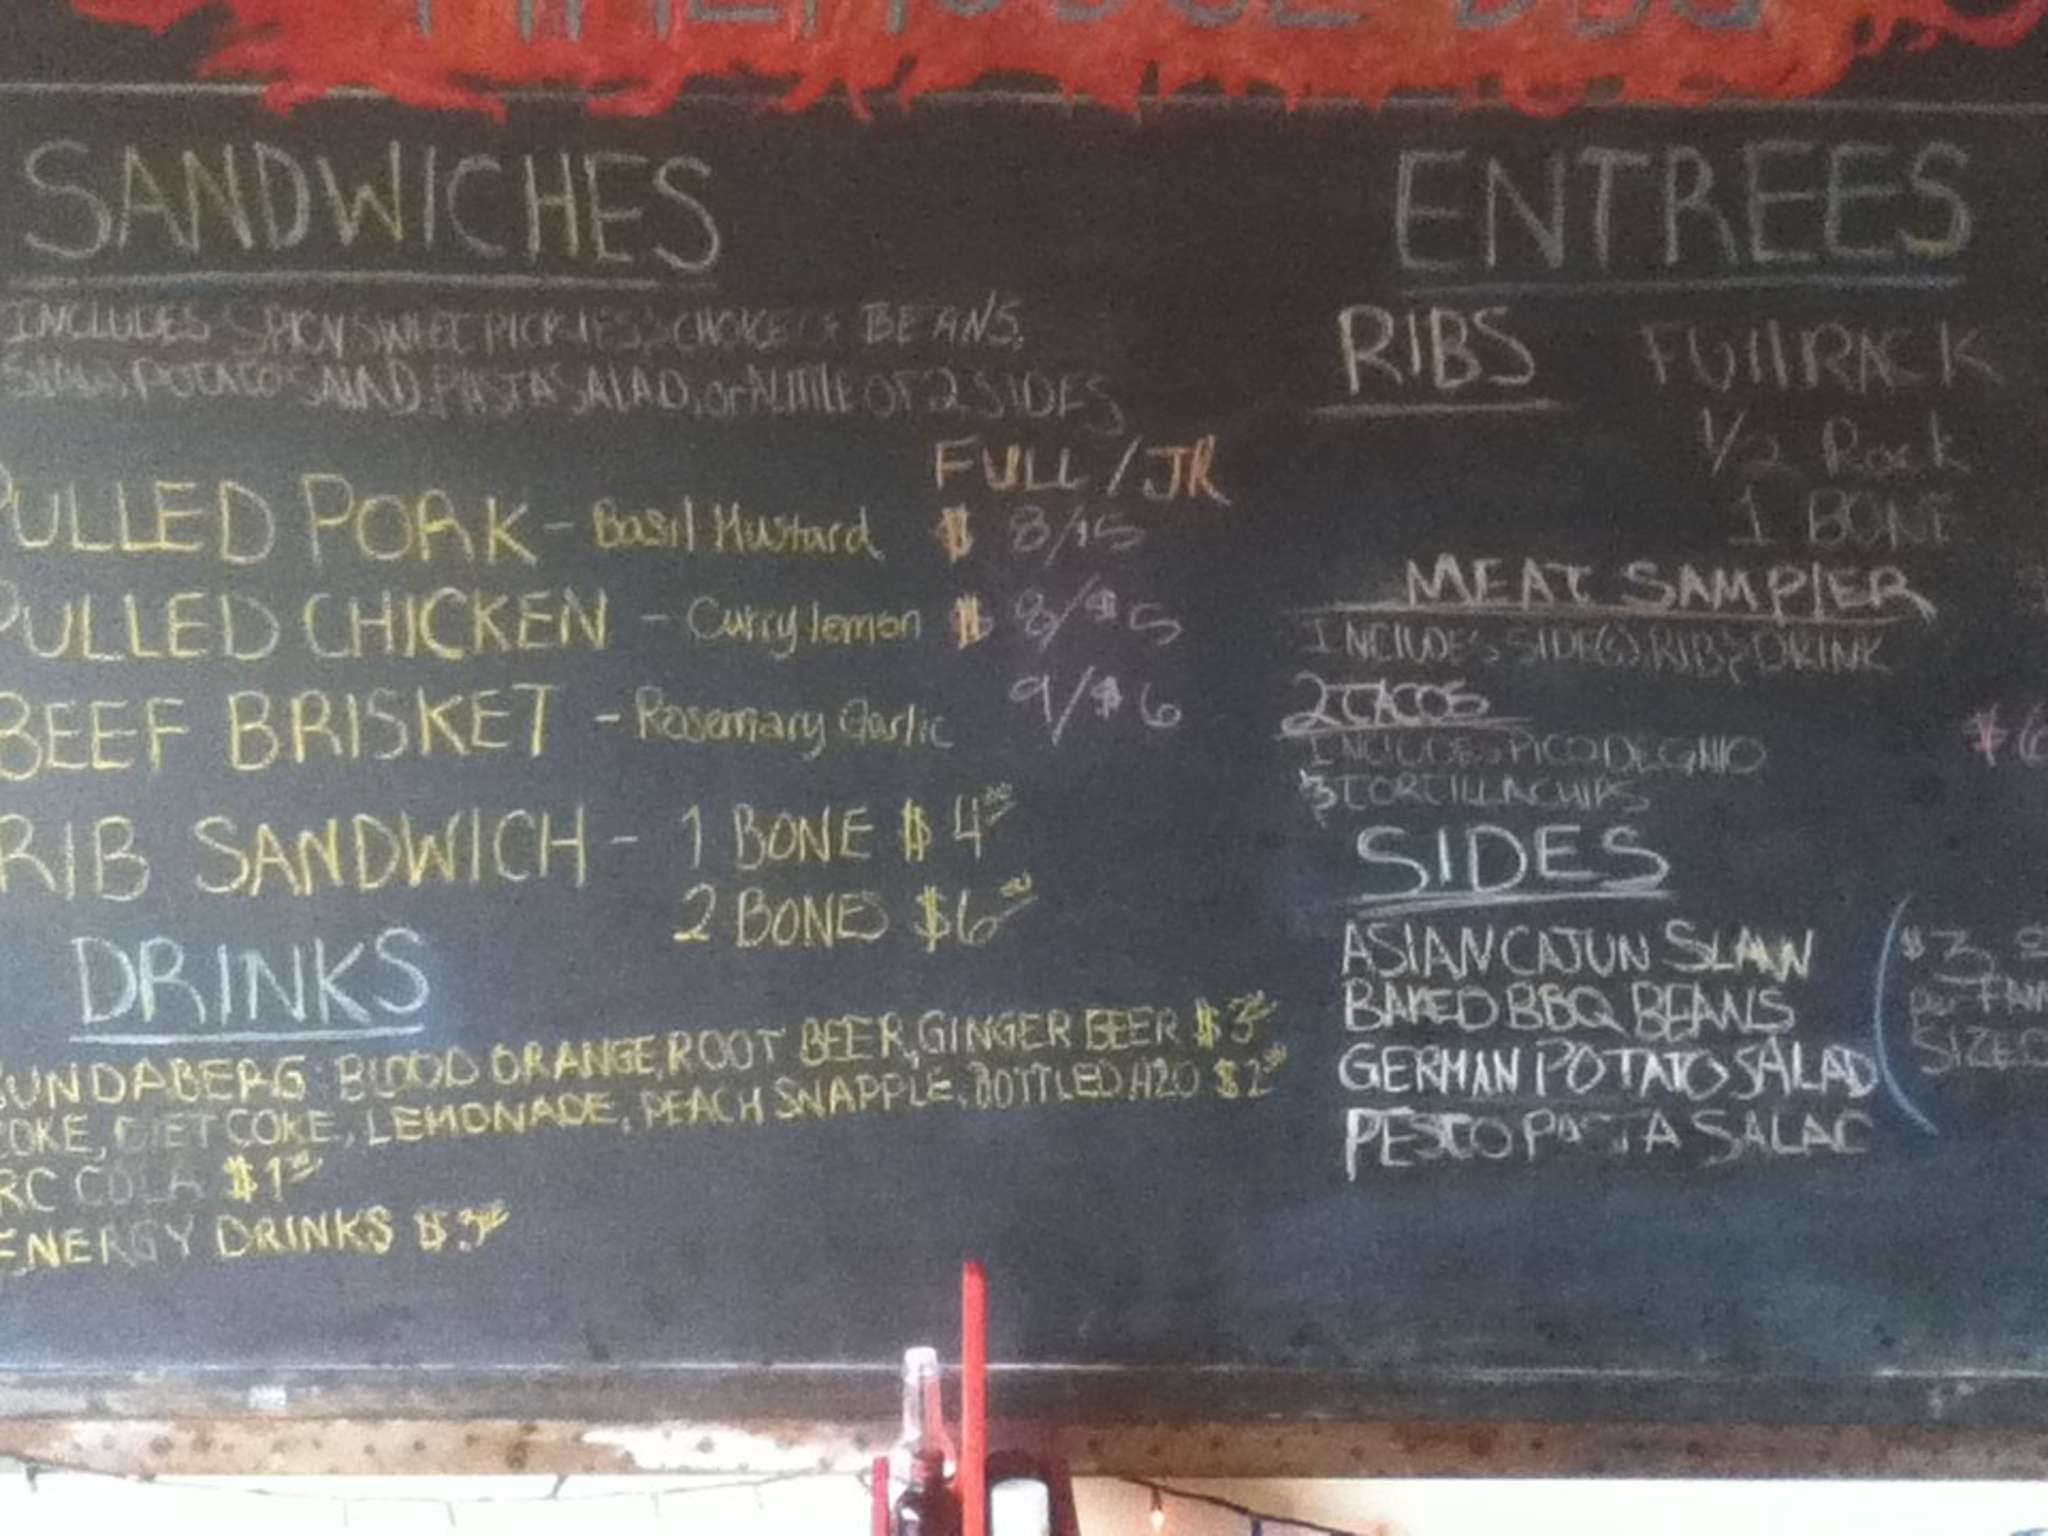 SANDWICHES
INCLUDES SPICY SWEET PICKLES & CHOICE OF BEANS,
SLAW, POTATO SALAD, PASTA SALAD, or A little OF 2 SIDES
FULL / JR
PULLED PORK - Basil Mustard $ 8/$5
PULLED CHICKEN - Curry lemon $ 8/$5
BEEF BRISKET - Rosemary Garlic 9/$6
RIB SANDWICH - 1 BONE $4.00
2 BONES $6.00
DRINKS
BUNDABERG BLOOD ORANGE, ROOT BEER, GINGER BEER $3
COKE, DIET COKE, LEMONADE, PEACH SNAPPLE, BOTTLED H2O $2
RC COLA $1
ENERGY DRINKS $3
ENTREES
RIBS FUll RACK
1/2 Rack
1 BONE
MEAT SAMPlER
INCLUDES SIDE(S), RIB & DRINK
2 TACOS
INCLUDES PICO DE GAllO $6
& TORTILLA CHIPS
SIDES
ASIAN CAJUN SLAW
BAKED BBQ BEANS
GERMAN POTATO SALAD
PESTO PASTA SALAD
$3
FAM
SIZED